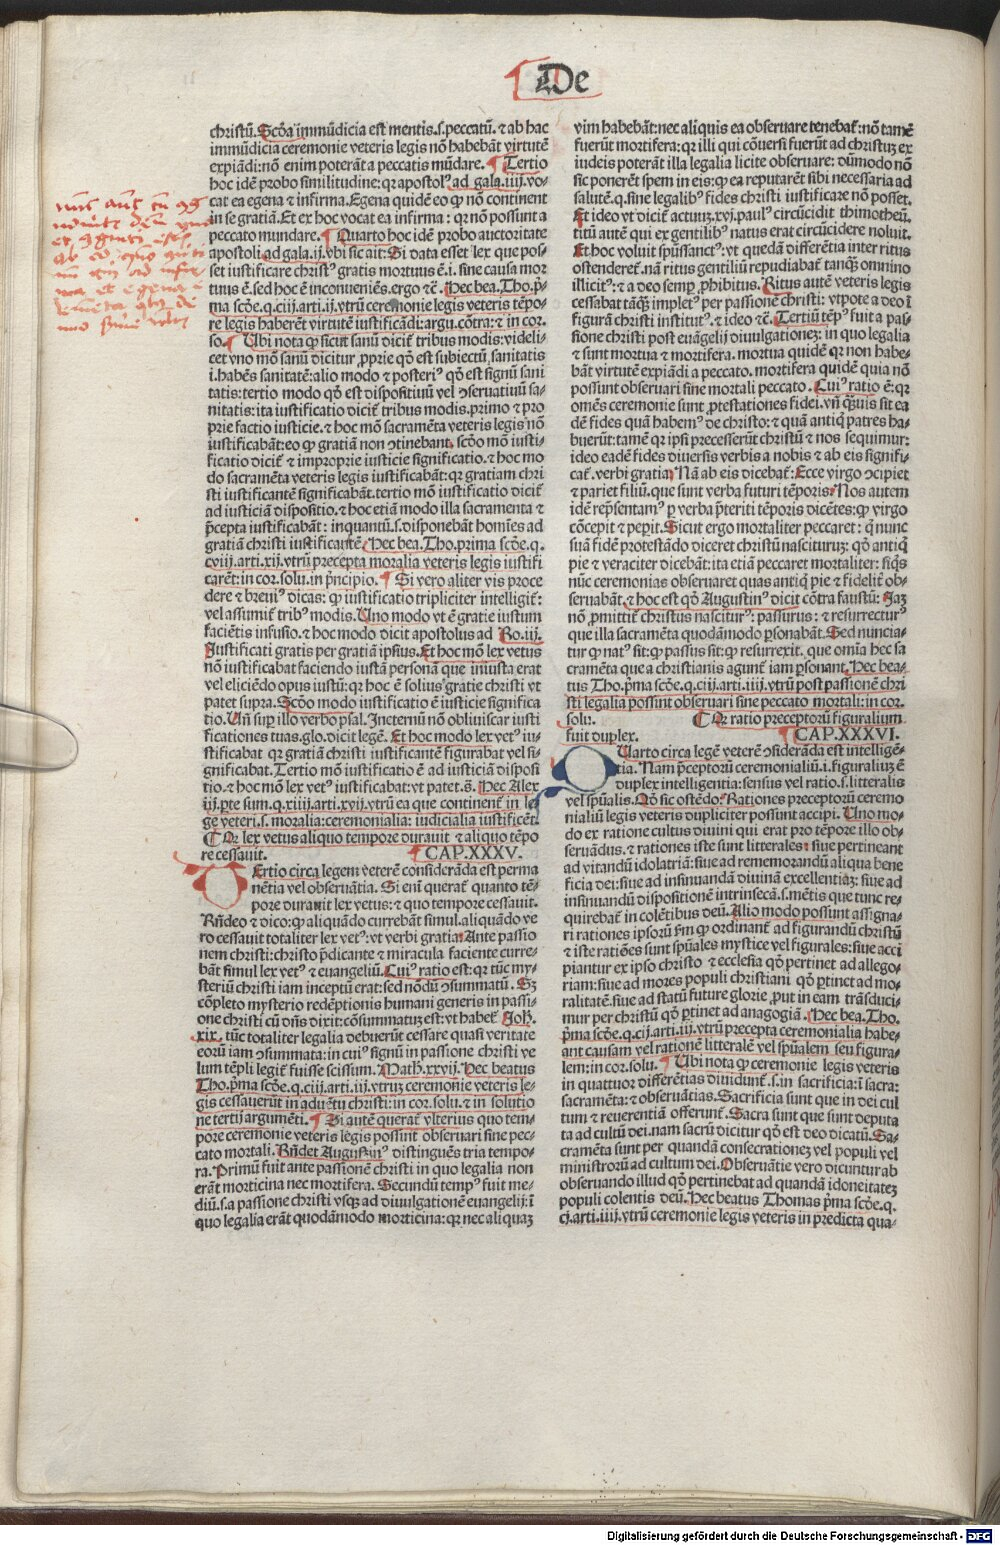 De
christū. Scḋa īmmūdicia est mentis.s.peccatū. ⁊ ab hac
immūdicia ceremonie veteris legis nō habebāt virtutē
expiādi: nō enim poterāt a peccatis mūdare. Tertio
hoc idē probo similitudine: qꝛ apostolꝰ ad gala.iiij.vo-
cat ea egena ⁊ infirma. Egena quidē eo ꝙ nō continent
in se gratiā. Et ex hoc vocat ea infirma: qꝛ nō possunt a
peccato mundare. Quarto hoc idē probo auctoritate
apostoli ad gala.ij.vbi sic ait: Si data esset lex que pos-
set iustificare christꝰ gratis mortuus ē.i. sine causa mor
tuus ē. sed hoc ē inconueniēs. ergo ⁊c̄. Hec bea. Tho. p̄-
ma scḋe.q.ciij.arti.ij.vtrū ceremonie legis veteris tēpo-
re legis haberēt virtutē iustificādi: argu.cōtra: ⁊ in cor.
so. Ubi nota ꝙ sicut sanū dicit̄ tribus modis: videli-
cet vno mō sanū dicitur ꝓprie qḋ est subiectū sanitatis
i. habēs sanitatē: alio modo ⁊ posteriꝰ qḋ est signū sani
tatis: tertio modo qḋ est dispositiuū vel ꝯseruatiuū sa-
nitatis: ita iustificatio dicit̄ tribus modis. primo ⁊ pro
prie factio iusticie. ⁊ hoc mō sacramēta veteris legis nō
iustificabāt: eo ꝙ gratiā non ꝯtinebant. scḋo mō iusti-
ficatio dicit̄ ⁊ improprie iusticie significatio. ⁊ hoc mo
do sacramēta veteris legis iustificabāt: qꝛ gratiam chri
sti iustificantē significabāt. tertio mō iustificatio dicit̄
ad iusticiā dispositio. ⁊ hoc etiā modo illa sacramenta ⁊
p̄cepta iustificabāt: inquantū.s.disponebāt homīes ad
gratiā christi iustificantē. Hec bea. Tho. prima scḋe.q.
cviij.arti.xij.vtrū precepta moralia veteris legis iustifi
carēt: in cor. solu. in p̄ncipio. Si vero aliter vis proce
dere ⁊ breuiꝰ dicas: ꝙ iustificatio tripliciter intelligit̄:
vel assumit̄ tribꝰ modis. Uno modo vt ē gratie iustum
faciētis infusio. ⁊ hoc modo dicit apostolus ad Ro.iij.
Iustificati gratis per gratiā ipsius. Et hoc mō lex vetus
nō iustificabat faciendo iustā personā que iniusta erat
vel eliciēdo opus iustū: qꝛ hoc ē solius gratie christi vt
patet supra. Scḋo modo iustificatio ē iusticie significa
tio. Uñ suꝑ illo verbo psal. In eternū nō obliuiscar iusti
ficationes tuas. glo. dicit legē. Et hoc modo lex vetꝰ iu-
stificabat qꝛ gratiā christi iustificantē figurabat vel si-
gnificabat. Tertio mō iustificatio ē ad iusticiā disposi
tio. ⁊ hoc mō lex vetꝰ iustificabat: vt patet.s̄. Hec Alex
iij. pte sum.q.xiiij.arti.xvij.vtrū ea que continent̄ in le
ge veteri.s. moralia: ceremonialia: iudicialia iustificēt.
Qꝛ lex vetus aliquo tempore durauit ⁊ aliquo tēpo
re cessauit. CAP.XXXV.
Tertio circa legem veterē considerāda est perma
nētia vel obseruātia. Si enī querat̄ quanto tē-
pore durauit lex vetus: ⁊ quo tempore cessauit.
Rñdeo ⁊ dico: ꝙ aliquādo currebāt simul. aliquādo ve
ro cessauit totaliter lex vetꝰ: vt verbi gratia: Ante passio
nem christi: christo p̄dicante ⁊ miracula faciente curre-
bāt simul lex vetꝰ ⁊ euangeliū. Cuiꝰ ratio est: qꝛ tūc my-
steriū christi iam inceptū erat: sed nōdū ꝯsummatū. Sꝫ
cōpleto mysterio redēptionis humani generis in passi-
one christi cū dn̄s dixit: cōsummatuꝫ est: vt habet̄ Joh̄.
xix. tūc totaliter legalia debuerūt cessare quasi veritate
eorū iam ꝯsummata: in cuiꝰ signū in passione christi ve
lum tēpli legit̄ fuisse scissum. Math.xxvij. Hec beatus
Tho. p̄ma scḋe.q.ciij.arti.iij.vtruꝫ ceremonie veteris le-
gis cessauerūt in aduētu christi: in cor. solu. ⁊ in solutio
ne tertij argumēti. Si autē querat̄ vlterius quo tem-
pore ceremonie veteris legis possint obseruari sine pec-
cato mortali. Rñdet Augustinꝰ distinguēs tria tempo-
ra. Primū fuit ante passionē christi in quo legalia non
erāt morticina nec mortifera. Secundū tempꝰ fuit me-
diū. s. a passione christi vsqꝫ ad diuulgationē euangelij: ī
quo legalia erāt quodāmodo morticina: qꝛ nec aliquaꝫ
vim habebāt: nec aliquis ea obseruare tenebat̄: nō tamē
fuerūt mortifera: qꝛ illi qui cōuersi fuerūt ad christuꝫ ex
iudeis poterāt illa legalia licite obseruare: dūmodo nō
sic ponerēt spem in eis: ꝙ ea reputarēt sibi necessaria ad
salutē. q. sine legalibꝰ fides christi iustificare nō posset.
Et ideo vt dicit̄ actuuꝫ.xvj. paulꝰ circūcidit thimotheū.
titū autē qui ex gentilibꝰ natus erat circūcidere noluit.
Et hoc voluit spūssanctꝰ: vt quedā differētia inter ritus
ostenderet̄. nā ritus gentiliū repudiabat̄ tanꝙ̄ omnino
illicitꝰ: ⁊ a deo semꝑ ꝓhibitus. Ritus autē veteris legis
cessabat tanꝙ̄ impletꝰ per passionē christi: vtpote a deo ī
figurā christi institutꝰ. ⁊ ideo ⁊c̄. Tertiū tēpꝰ fuit a pas
sione christi post euāgelij diuulgationeꝫ: in quo legalia
⁊ sunt mortua ⁊ mortifera. mortua quidē qꝛ non habe-
bāt virtutē expiādi a peccato. mortifera quidē quia nō
possunt obseruari sine mortali peccato. Cuiꝰ ratio ē: qꝛ
omēs ceremonie sunt ꝓtestationes fidei. vñ qꝙ̄uis sit ea
dē fides quā habemꝰ de christo: ⁊ quā antiqͥ patres ha-
buerūt: tamē qꝛ ipsi precesserūt christū ⁊ nos sequimur:
ideo eadē fides diuersis verbis a nobis ⁊ ab eis signifi-
cat̄. verbi gratia. Nā ab eis dicebat̄: Ecce virgo ꝯcipiet
⁊ pariet filiū. que sunt verba futuri tēporis: Nos autem
idē rep̄sentamꝰ ꝑ verba p̄teriti tēporis dicētes: ꝙ virgo
cōcepit ⁊ peꝑit. Sicut ergo mortaliter peccaret: qͥ nunc
suā fidē protestādo diceret christū nascituruꝫ: qḋ antiqͥ
pie ⁊ veraciter dicebāt: ita etiā peccaret mortaliter: siqͥs
nūc ceremonias obseruaret quas antiqͥ pie ⁊ fidelit̄ ob-
seruabāt. ⁊ hoc est qḋ Augustinꝰ dicit cōtra faustū: Jaꝫ
nō ꝓmittit̄ christus nasciturꝰ: passurus: ⁊ resurrecturꝰ
que illa sacramēta quodāmodo ꝑsonabāt. Sed nuncia-
tur ꝙ natꝰ sit: ꝙ passus sit: ꝙ resurrexit. que om̄ia hec sa
cramēta que a christianis agunt̄ iam ꝑsonant. Hec bea-
tus Tho. p̄ma scḋe.q.ciij.arti.iiij.vtrū post passionē chri
sti legalia possint obseruari sine peccato mortali: in cor.
solu. Qꝛ ratio preceptorū figuralium
fuit duplex. CAP.XXXVI.
Quarto circa legē veterē ꝯsiderāda est intelligē-
tia. Nam p̄ceptorū ceremonialiū.i.figuraliuꝫ ē
duplex intelligentia: sensus vel ratio.s.litteralis
vel sp̄ualis. Qḋ sic ostēdo: Rationes preceptorū ceremo
nialiū legis veteris dupliciter possunt accipi. Uno mo-
do ex ratione cultus diuini qui erat pro tēpore illo ob-
seruādus. ⁊ rationes iste sunt litterales: siue pertineant
ad vitandū idolatriā: siue ad rememorādū aliqua bene
ficia dei: siue ad insinuandā diuinā excellentiaꝫ: siue ad
insinuandū dispositionē intrinsecā. s. mētis que tunc re-
quirebat̄ in colētibus deū. Alio modo possunt assigna-
ri rationes ipsorū ẜm ꝙ ordinant̄ ad figurandū christū
⁊ iste ratiōes sunt sp̄uales mystice vel figurales: siue acci
piantur ex ipso christo ⁊ ecclesia qḋ pertinet ad allego-
riam: siue ad mores populi christiani qḋ ꝑtinet ad mo-
ralitatē. siue ad statū future glorie ꝓut in eam trāsduci-
mur per christū qḋ ꝑtinet ad anagogiā. Hec bea. Tho.
p̄ma scḋe.q.cij.arti.iij.vtrū precepta ceremonialia habe-
ant causam vel rationē litteralē vel sp̄ualem seu figura-
lem: in cor. solu. Ubi nota ꝙ ceremonie legis veteris
in quattuor differētias diuidunt̄. s. in sacrificia: ī sacra:
sacramēta: ⁊ obseruātias. Sacrificia sunt que in dei cul
tum ⁊ reuerentiā offerunt̄. Sacra sunt que sunt deputa
ta ad cultū dei. nam sacrū dicitur qḋ est deo dicatū. Sa-
cramēta sunt per quandā consecrationeꝫ vel populi vel
ministrorū ad cultum dei. Obseruātie vero dicuntur ab
obseruando illud qḋ pertinebat ad quandā idoneitateꝫ
populi colentis deū. Hec beatus Thomas p̄ma scḋe.q.
cj.arti.iiij.vtrū ceremonie legis veteris in predicta qua-
Digitalisierung gefördert durch die Deutsche Forschungsgemeinschaft - DFG